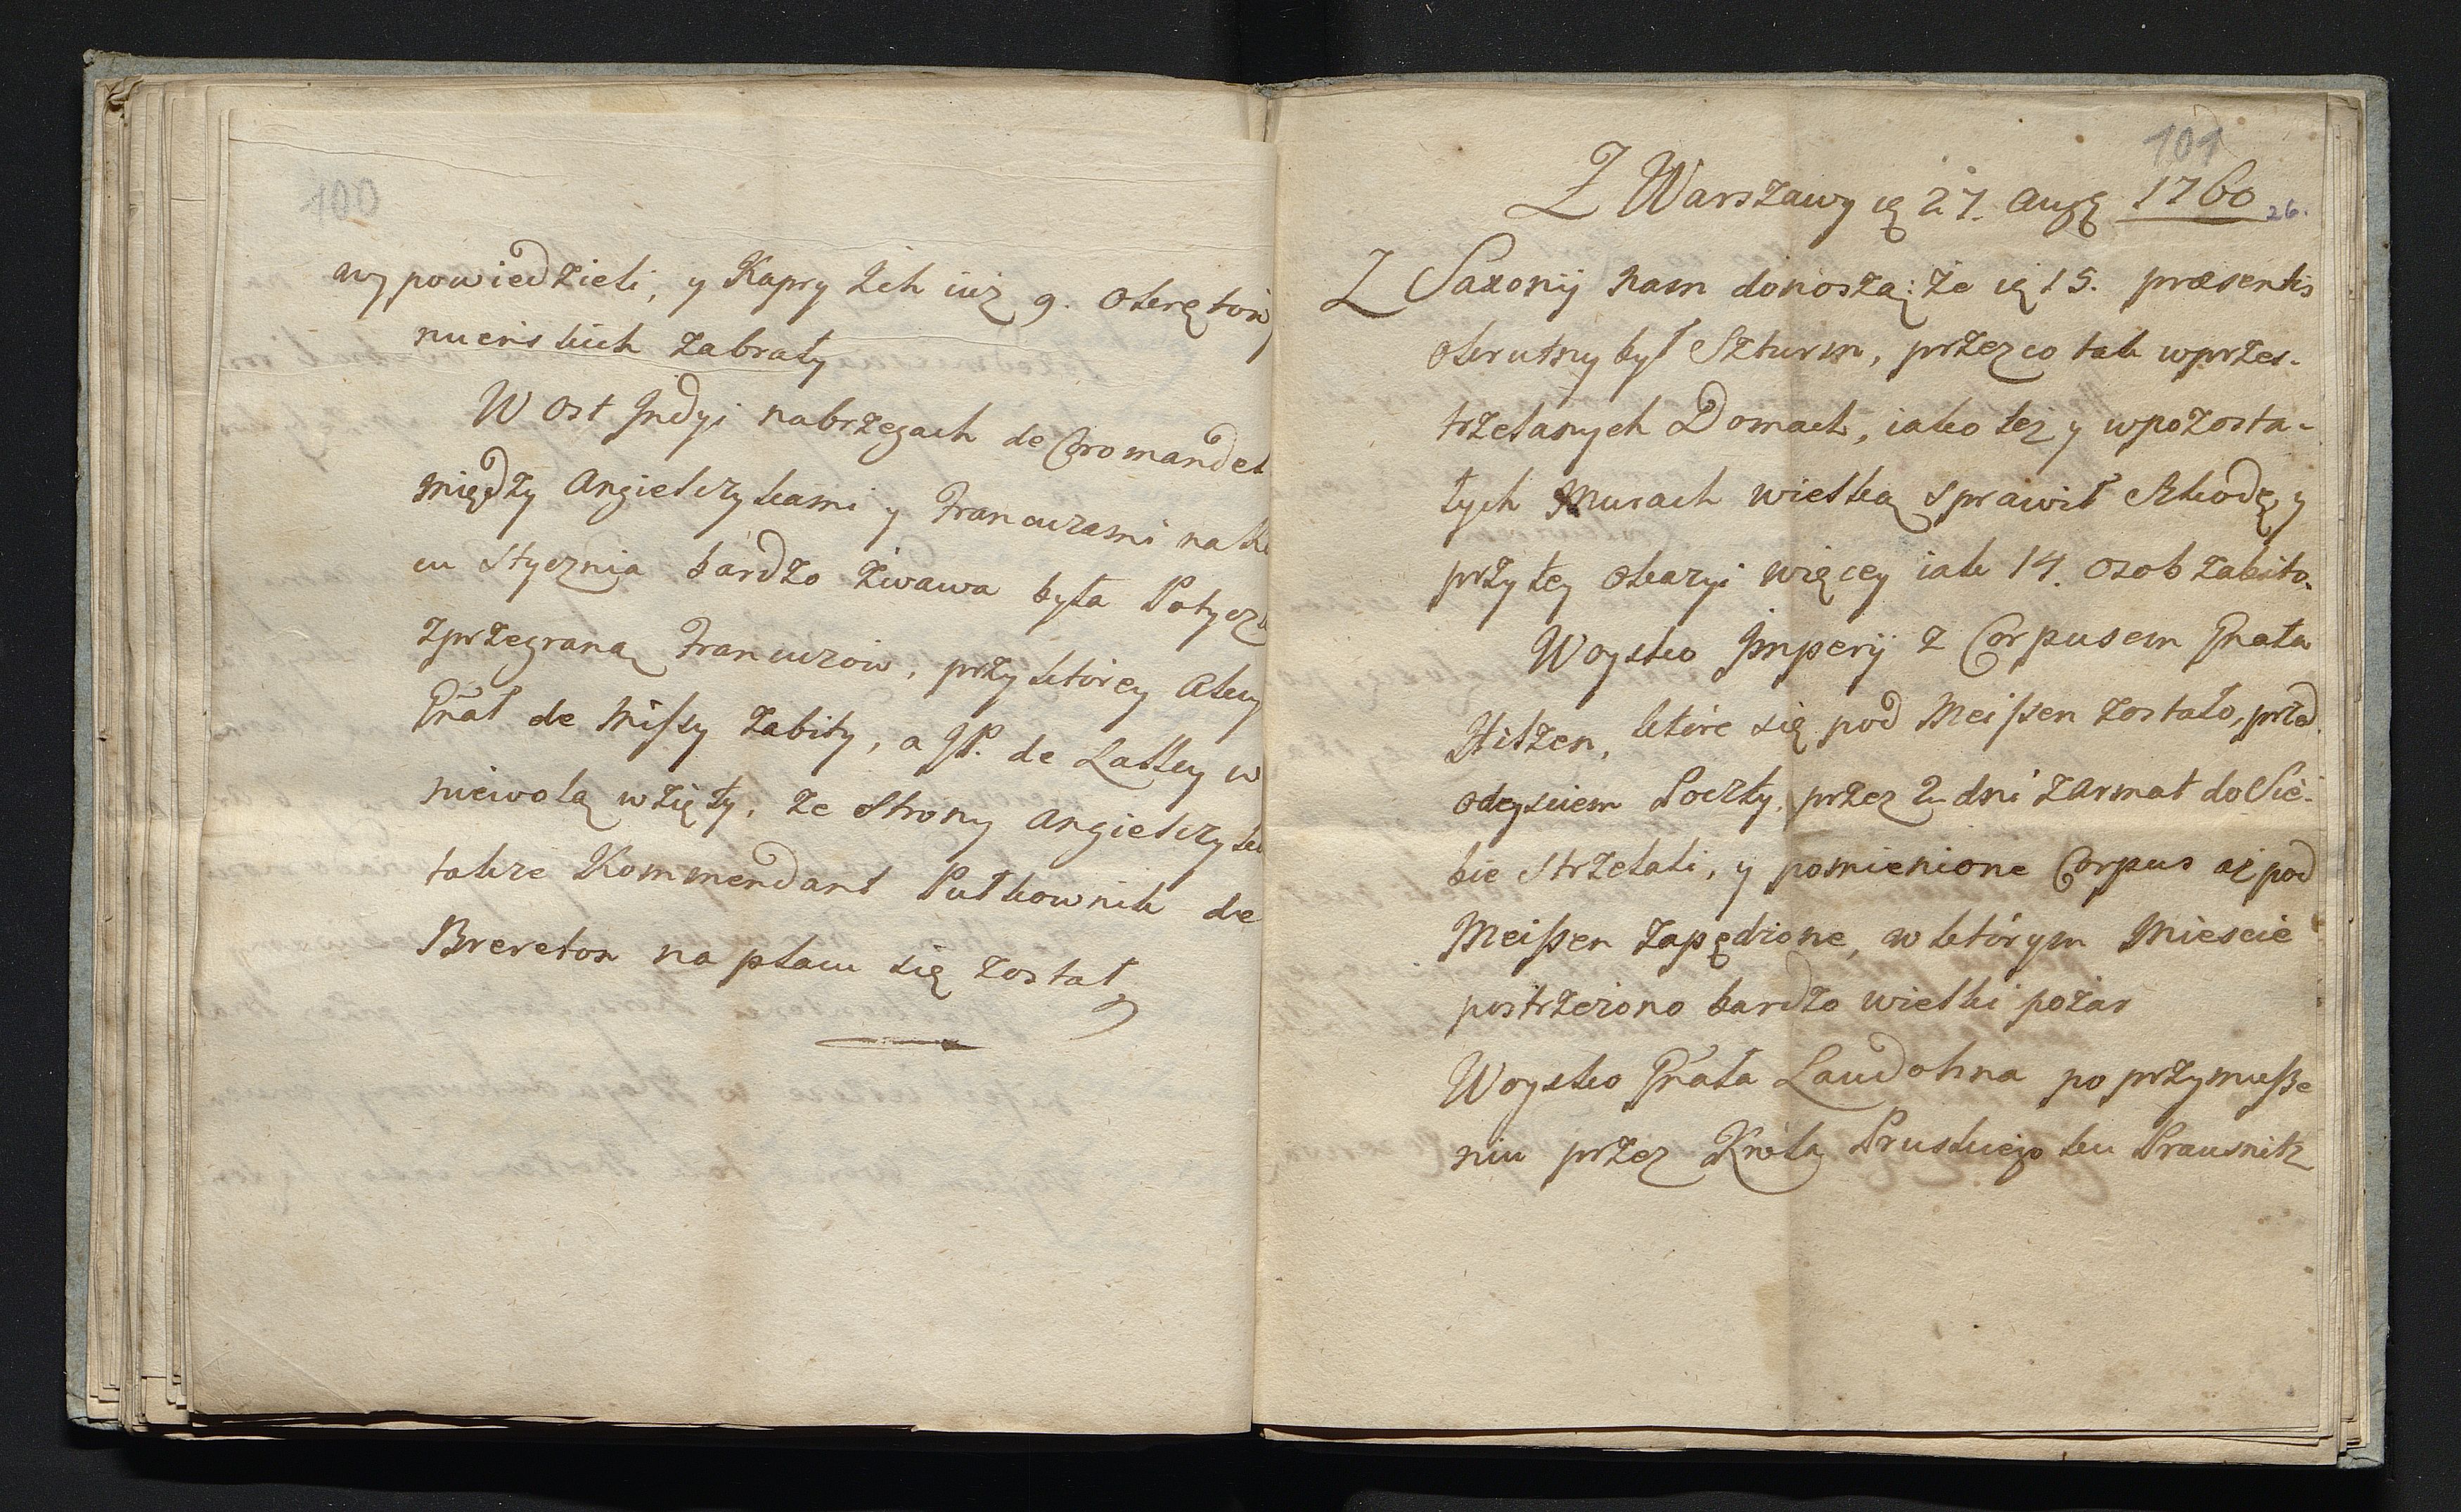 100
wypowiedzieli, y Kapry Ich iuz 9. Okrętow
nuenskich zabrały
W Ost Indyi nabrzegach de Coromandel
między Angielczykami y Francuzami
cu Stycznia bardzo zwawa była
zprzegraną Francuzow, przy ktorey
Gnał de Missy zabity, a JP. de Lalley w
niewolą wzięty. Ze Strony Angielczyk
takze Kommendant Pułkownik de
Brereton na placu się został
101
Z Warszawy 27. Aug 1760
26.
Z Saxonij nam donoszą: że 15. præsentis
okrutny był Szturm, przez co tak wprzes-
trzelanych Domach, iako też y wpozosta-
łych Murach wielką sprawił Szkodę, y
przy tey okazyi więcey iak 14. osob zabito.
Woysko Imperij z Corpusem Gnała
Hilzen, ktore się pod Meißen zostało, przed
odeysciem Poczty, przez 2. dni z Armat do Sie-
bie Strzelali, y pomienione Corpus aż pod
Meißen zapędzione, w ktorym Miescie
postrzeżono bardzo wielki pożar
Woysko Gnała Laudohna po przymusze
niu przez Krola Pruskiego ku Prausnitz